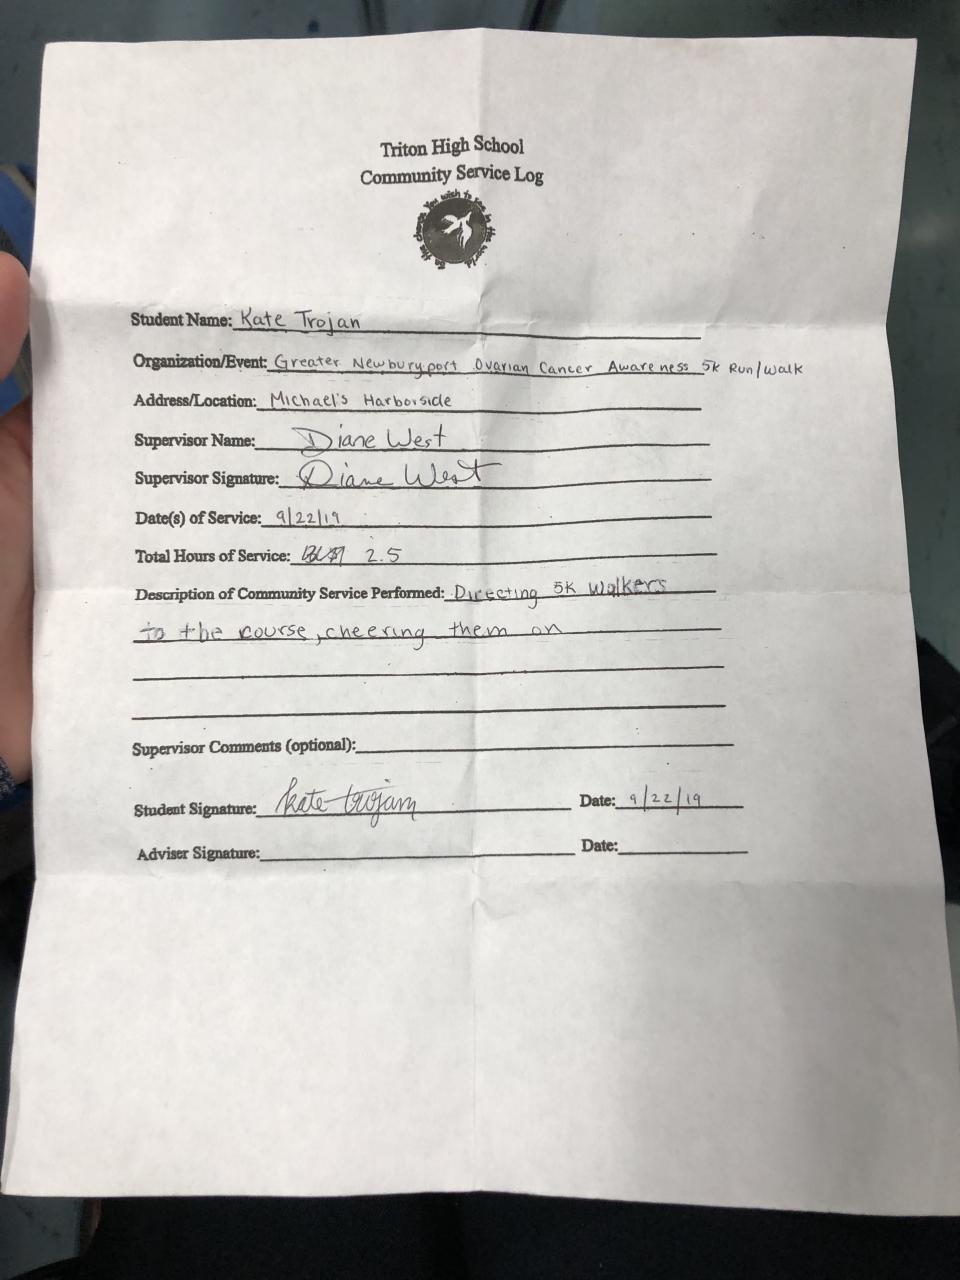 Triton High School
Community Service Log
Be the change You wish to see in the world.
Student Name: Kate Trojan
Organization/Event: Greater Newburyport Ovarian Cancer Awareness 5k Run/Walk
Address/Location: Michael's Harborside
Supervisor Name: Diane West
Supervisor Signature: Diane West
Date(s) of Service: 9/22/19
Total Hours of Service: 2.5
Description of Community Service Performed: Directing 5K walkers
to the course, cheering them on
Supervisor Comments (optional):
Student Signature: kate trojan Date: 9/22/19
Adviser Signature: Date: